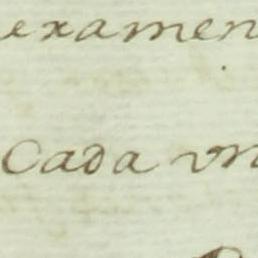 examen
Cada vn